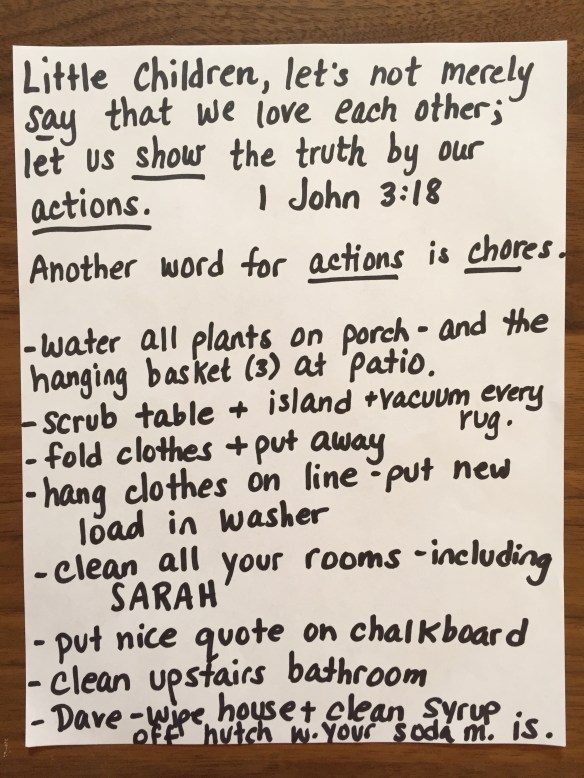 Little Children, let's not merely
say that we love each other;
let us show the truth by our
actions. 1 John 3:18
Another word for actions is chores.
-water all plants on porch - and the
hanging basket (3) at patio.
-scrub table + island +vacuum every
rug.
- fold clothes + put away
- hang clothes on line - put new
load in washer
- clean all your rooms - including
SARAH
- put nice quote on chalkboard
- clean upstairs bathroom
- Dave - wipe house + clean syrup
off hutch w. your soda m. is.